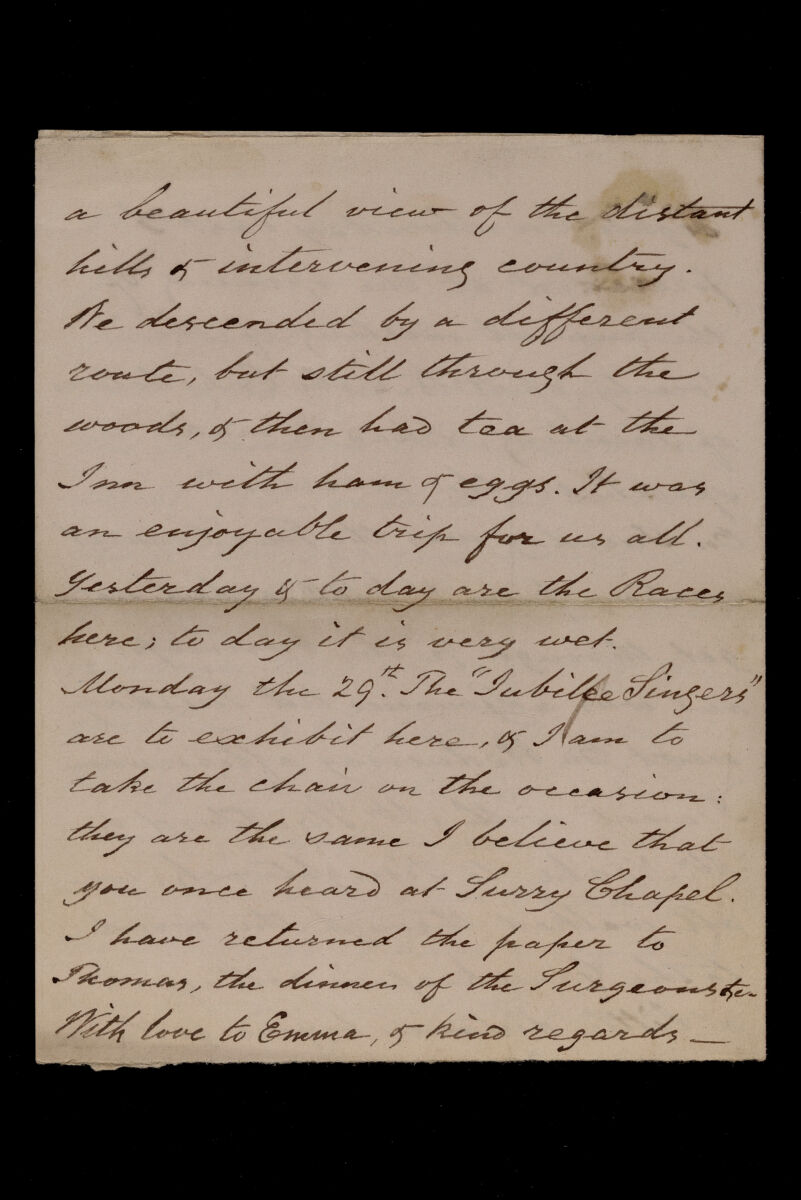 a beautiful view of the distant
hills & intervening country.
We descended by a different
route, but still through the
woods, & then had tea at the
Inn with ham & eggs. It was
an enjoyable trip for us all.
Yesterday & to day are the Races
here; to day it is very wet.
Monday the 29th. The "Jubilee Singers"
are to exhibit here, & I am to
take the chair on the occasion:
they are the same I believe that
you once heard at Surry Chapel.
I have returned the paper to
Thomas, the dinner of the Surgeons &c-
With love to Emma, & kind regards —